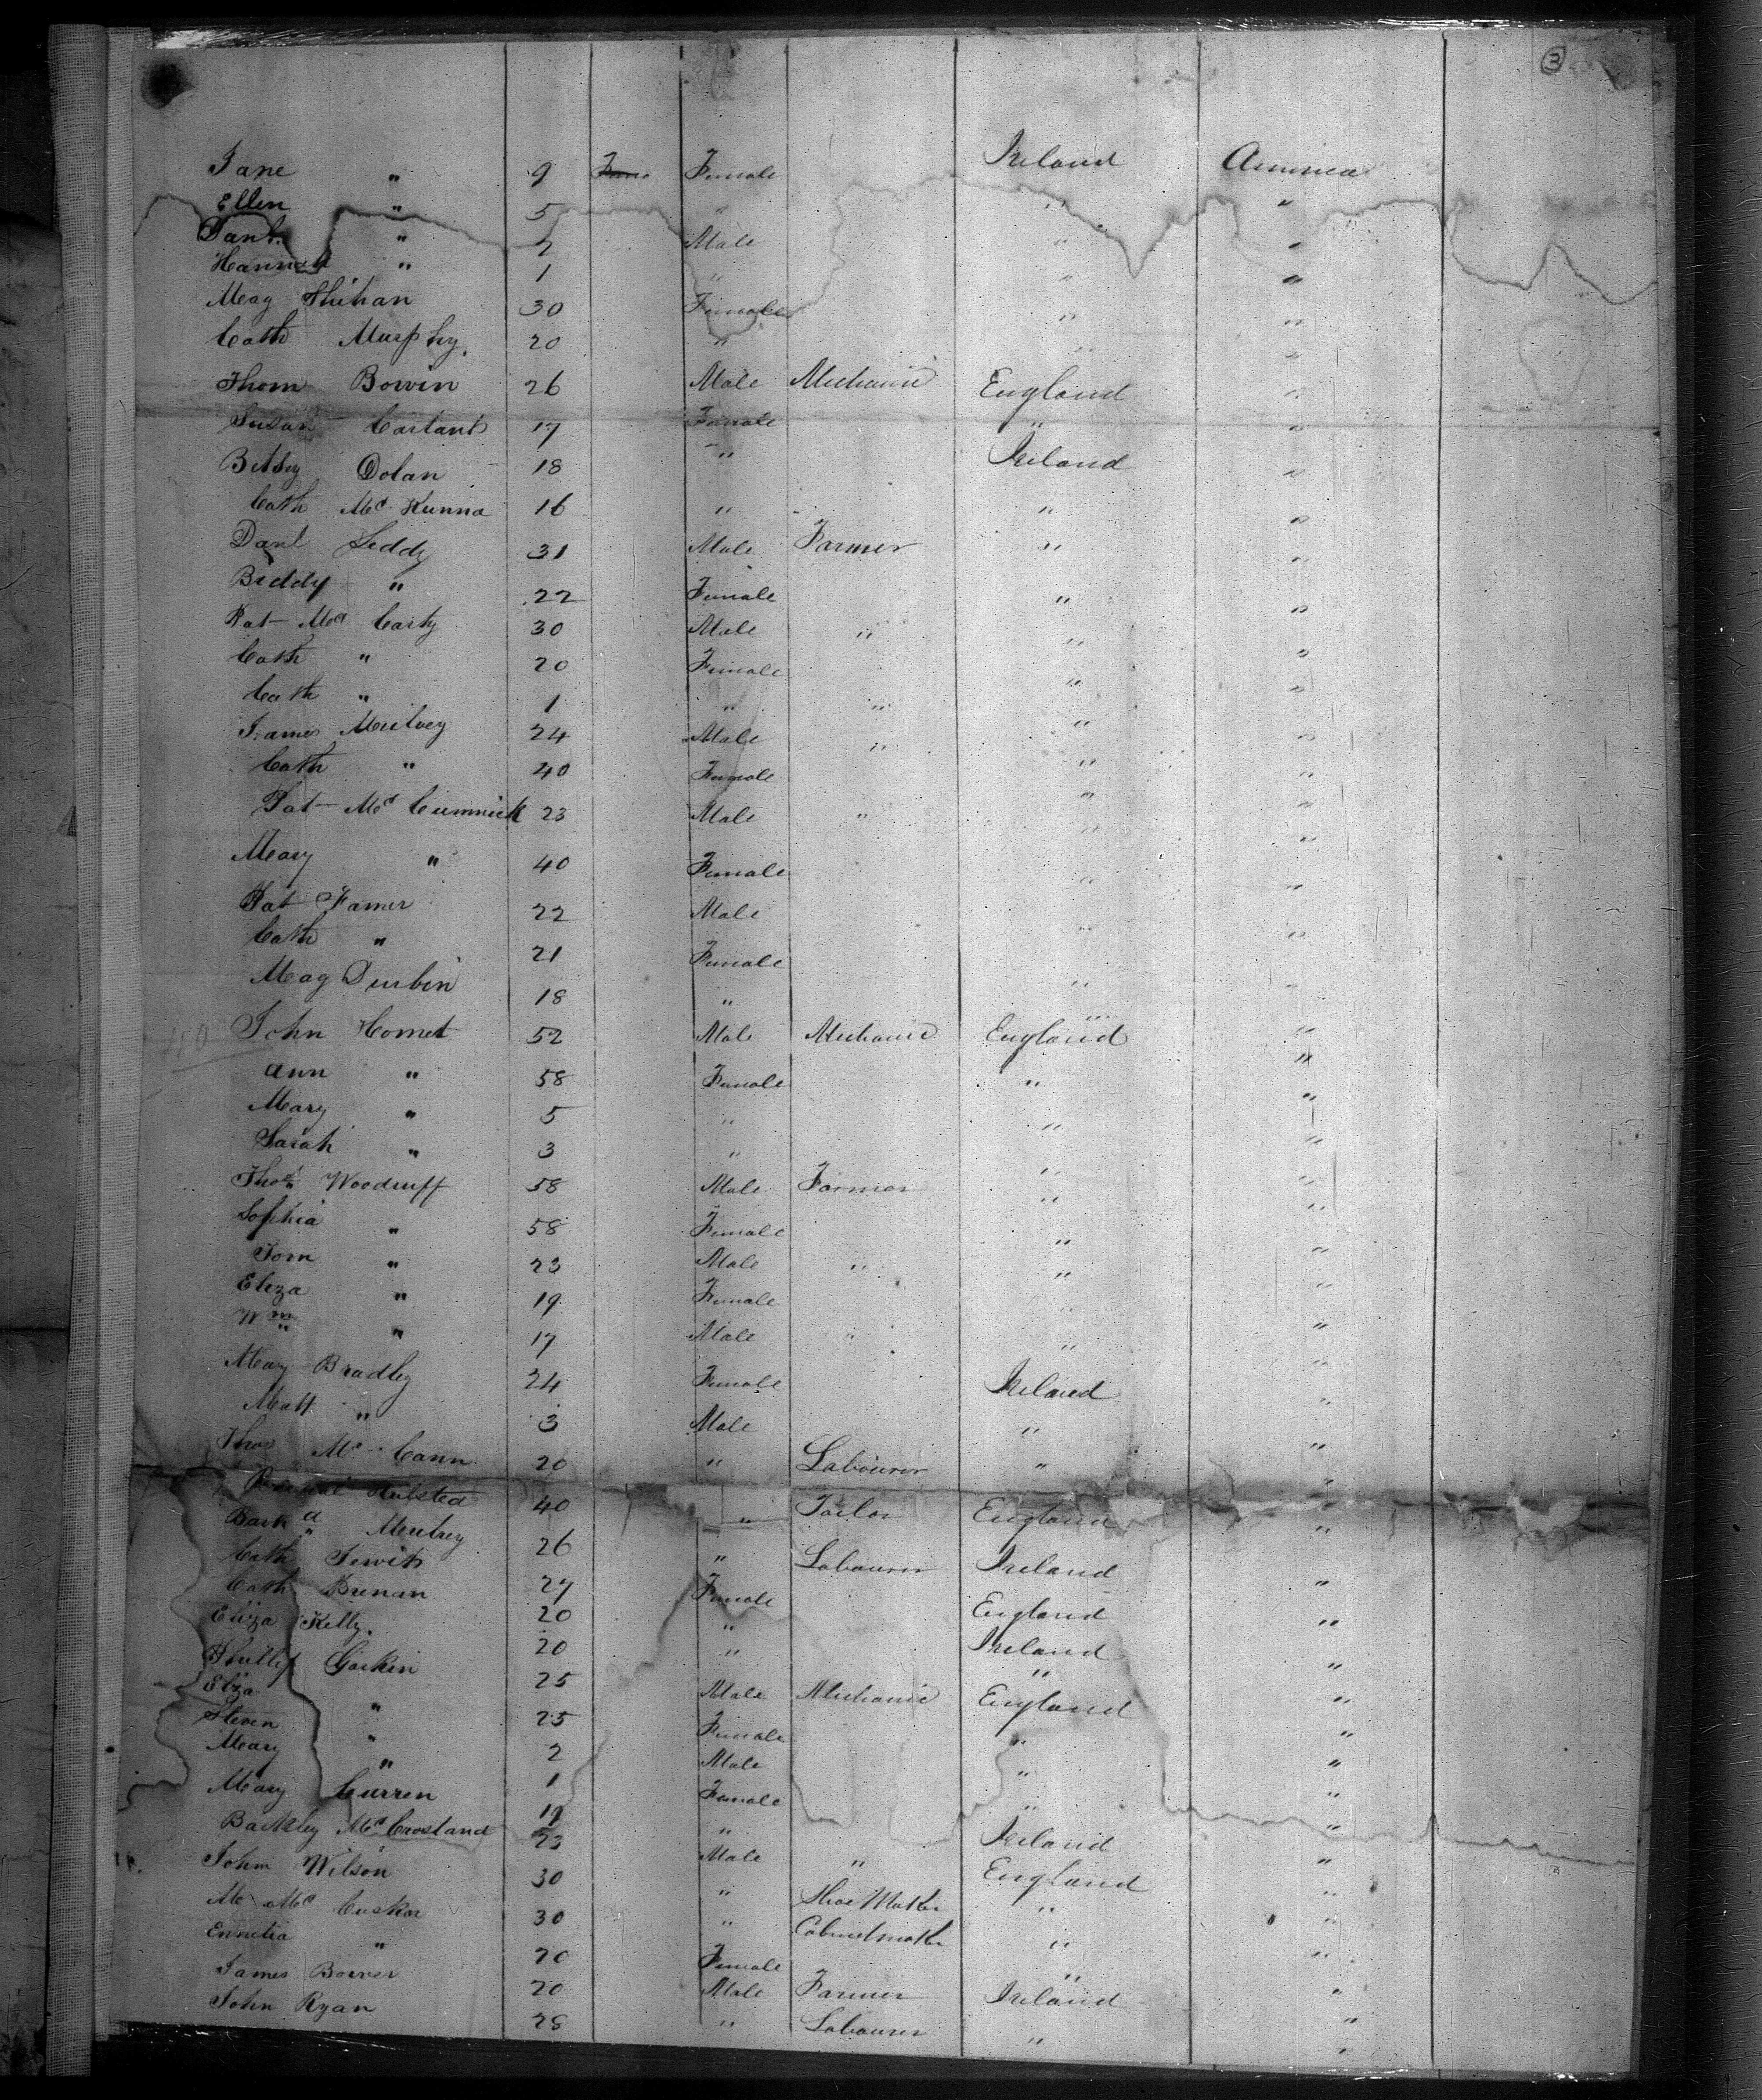 3
Jane " 9 Female Ireland America
Ellen " 5 " " "
Danl. " 2 Male " "
Hannah " 1 " " "
Meag Shihan 30 Female " "
Cath Murphy. 20 " " "
Thom Bowin 26 Male Mechanic England "
Susan Cartant 17 Female " "
Betsy Dolan 18 " Ireland "
Cath Mc Kunna 16 " " "
Danl Leddy 31 Male Farmer " "
Biddy " 22 Female " "
Pat Mc Carty 30 Male " " "
Cath " 20 Female " "
Cath " 1 " " " "
James Mulvey 24 Male " " "
Cath " 40 Female " "
Pat Mc Cummick 23 Male " " "
Meary " 40 Female " "
Pat Famer 22 Male " "
Cath " 21 Female " "
Meag Durbin 18 " " "
John Homet 52 Male Mechanic England "
Ann " 58 Female " "
Meary " 5 " " "
Sarah " 3 " " "
Thos Woodruff 58 Male Farmer " "
Sophia " 58 Female " "
Tom " 23 Male " " "
Eliza " 19 Female " "
Wm " 17 Male " " "
Meary Bradley 24 Female Ireland "
Matt " 3 Male " "
Thos Mc Cann 20 " Labourer " "
Hulsted 40 " Tailor England "
Barnd Meutrey 26 " Labourer Ireland "
Cath Jewits 27 Female England "
Cath Brenan 20 " Ireland "
Eliza Kelly. 20 " " "
Phillip Gorkin 25 Male Mechanic England "
Elza " 25 Female " "
Steven " 2 Male " "
Meary " 1 Female " "
Meary Curren 19 " Ireland "
Barkley Mc Crosland 23 Male " England "
John Wilson 30 " Shoe Maker " "
Mc Cuskor 30 " Cabinetmaker " "
Emmelia " 20 Female " "
James Bower 20 Male Farmer Ireland "
John Ryan 28 " Labourer " "